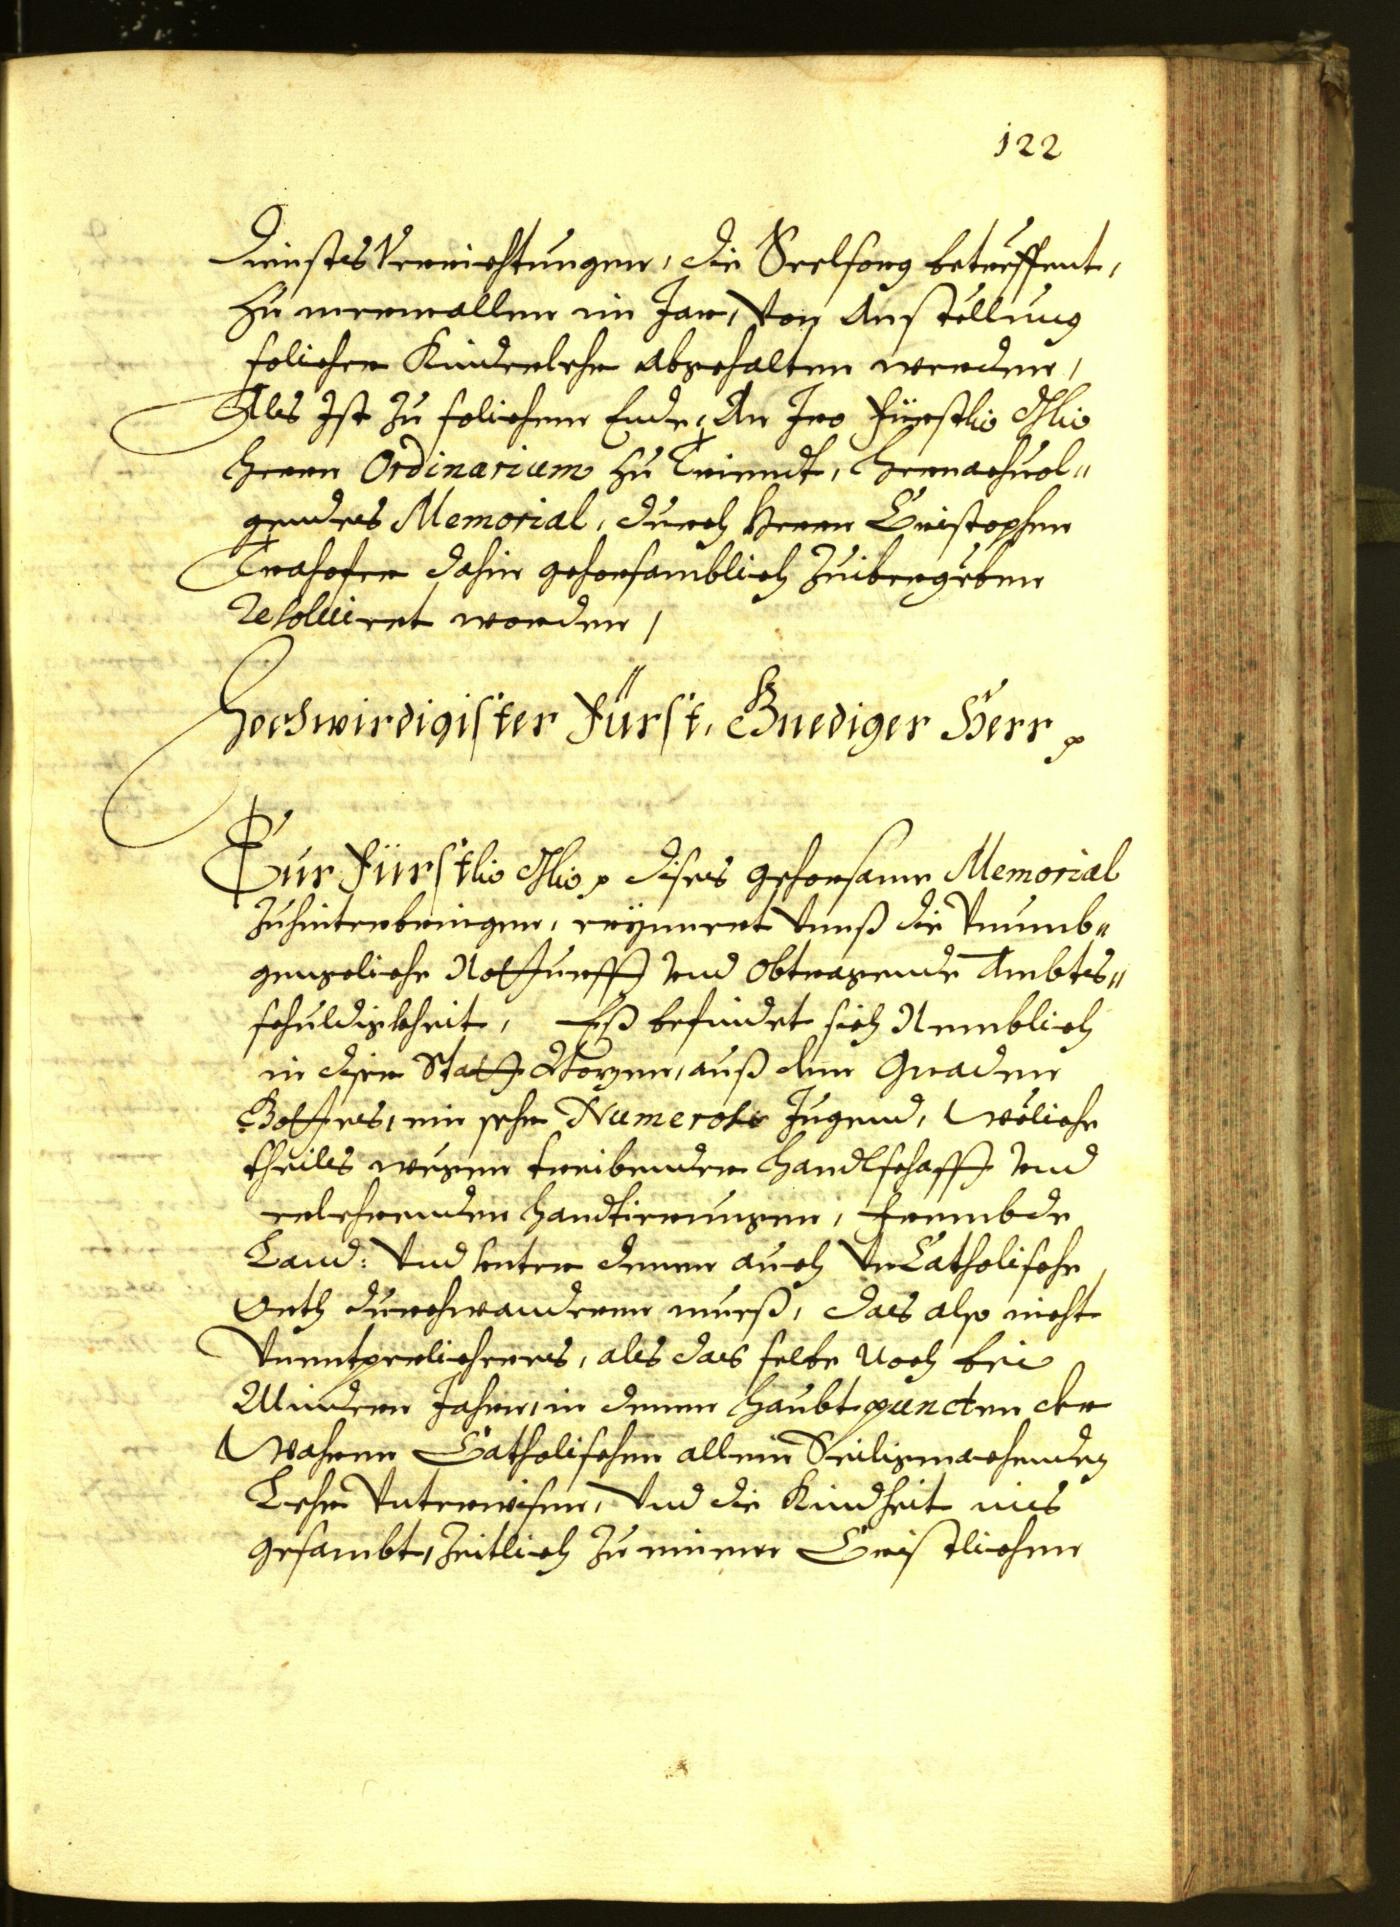 122
Dienstes Verrichtungen, die Seelsorg betreffent,
zu mermallen im Jar, von Anstellung
solicher Kinderlehr abgehalten werden,
Als Ist zu solichem Ende, An Iro Fürstlio Gdlio
Herrn Ordinarium zu Trienndt, hernachuol-
gendes Memorial, durch Herrn Cristophen
Trahofer dahin gehorsamblich zuibergeben
resoluiret worden,
Hochwirdigister Fürst, Gnediger Herr
Eur Fürstlio Gdlio dises gehorsame Memorial
zuhinterbringen, erÿnnert Unnß die Unumb-
gengeliche Notturfft vnd Obtragende Ambts-
schuldigkheit, Eß befindet sich Nemblich
in diser Statt Bozen, auß den Gnaden
Gottes, ein sehr Numerose Jugend, Weliche
theils wegen treibender Handlschafft vnd
erlehrnenden Handtierungen, frembde
Land: Und unter denen auch UnCatholische
Orth durchwanderen mueß, das also nicht
Unentperlichers, als das selbe Noch bei
Mindern Jahren, in denen Haubtpuncten der
Wahren Catholischen allein Seeligmachenden
Lehr Unterwisen, Und die Kindheit ins
gesambt, Zeitlich zu einner Cristlichen